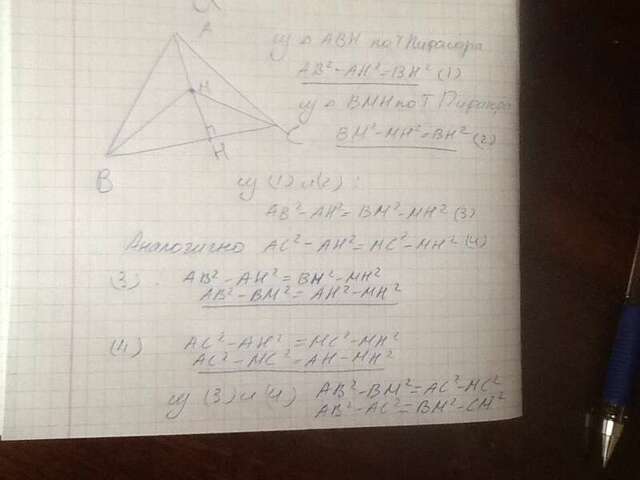 A
M
C
H
B
из △ ABH по т Пифагора
AB² - AH² = BH² (1)
из △ BMH по т Пифагора
BM² - MH² = BH² (2)
из (1) и (2) :
AB² - AH² = BM² - MH² (3)
Аналогично AC² - AH² = MC² - MH² (4)
(3) AB² - AH² = BM² - MH²
AB² - BM² = AH² - MH²
(4) AC² - AH² = MC² - MH²
AC² - MC² = AH - MH²
из (3) и (4) AB² - BM² = AC² - MC²
AB² - AC² = BM² - CM²